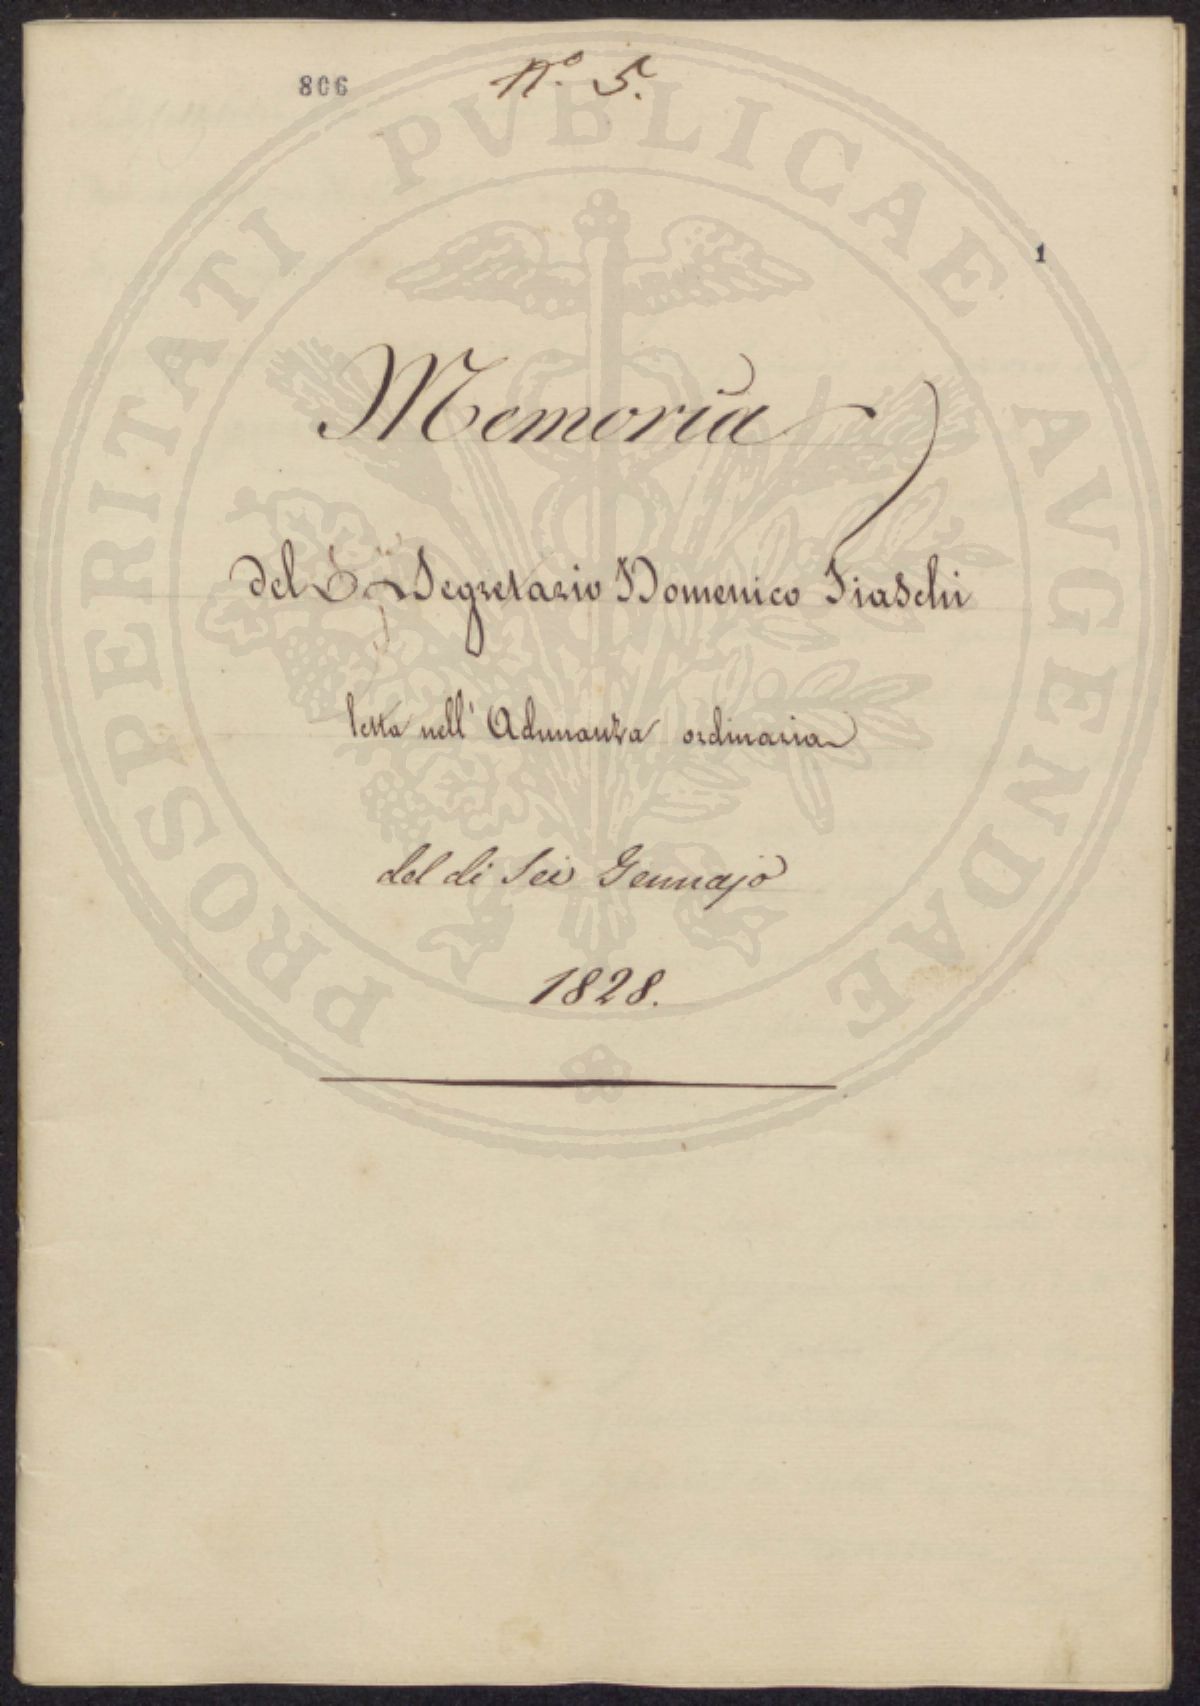 806 N.º 5.
PROSPERITATI PVBLICAE AVGENDAE
1
Memoria
del Segretario Domenico Fiaschi
letta nell' Adunanza ordinaria
del di Sei Gennajo
1828.